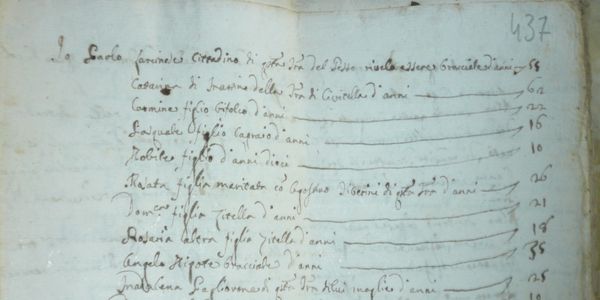 437
Io Paolo farinele Cittadino di qta Tra del Pesto rivela essere bracciale d'anni 55
Catarina di Martino della Tra di Civitella d'anni 62
Carmine figlio bifolco d'anni 22
Pasquale figlio Capraro d'anni 16
Nobile figlio d'anni dieci 10
Rosata figlia maritata co di qta Tra d'anni 26
Domca figlia zitella d'anni 21
Rosaria altra figlia zitella d'anni 18
Angelo Nipote bracciale d'anni 35
Madalena di qta Tra di lui moglie d'anni 25